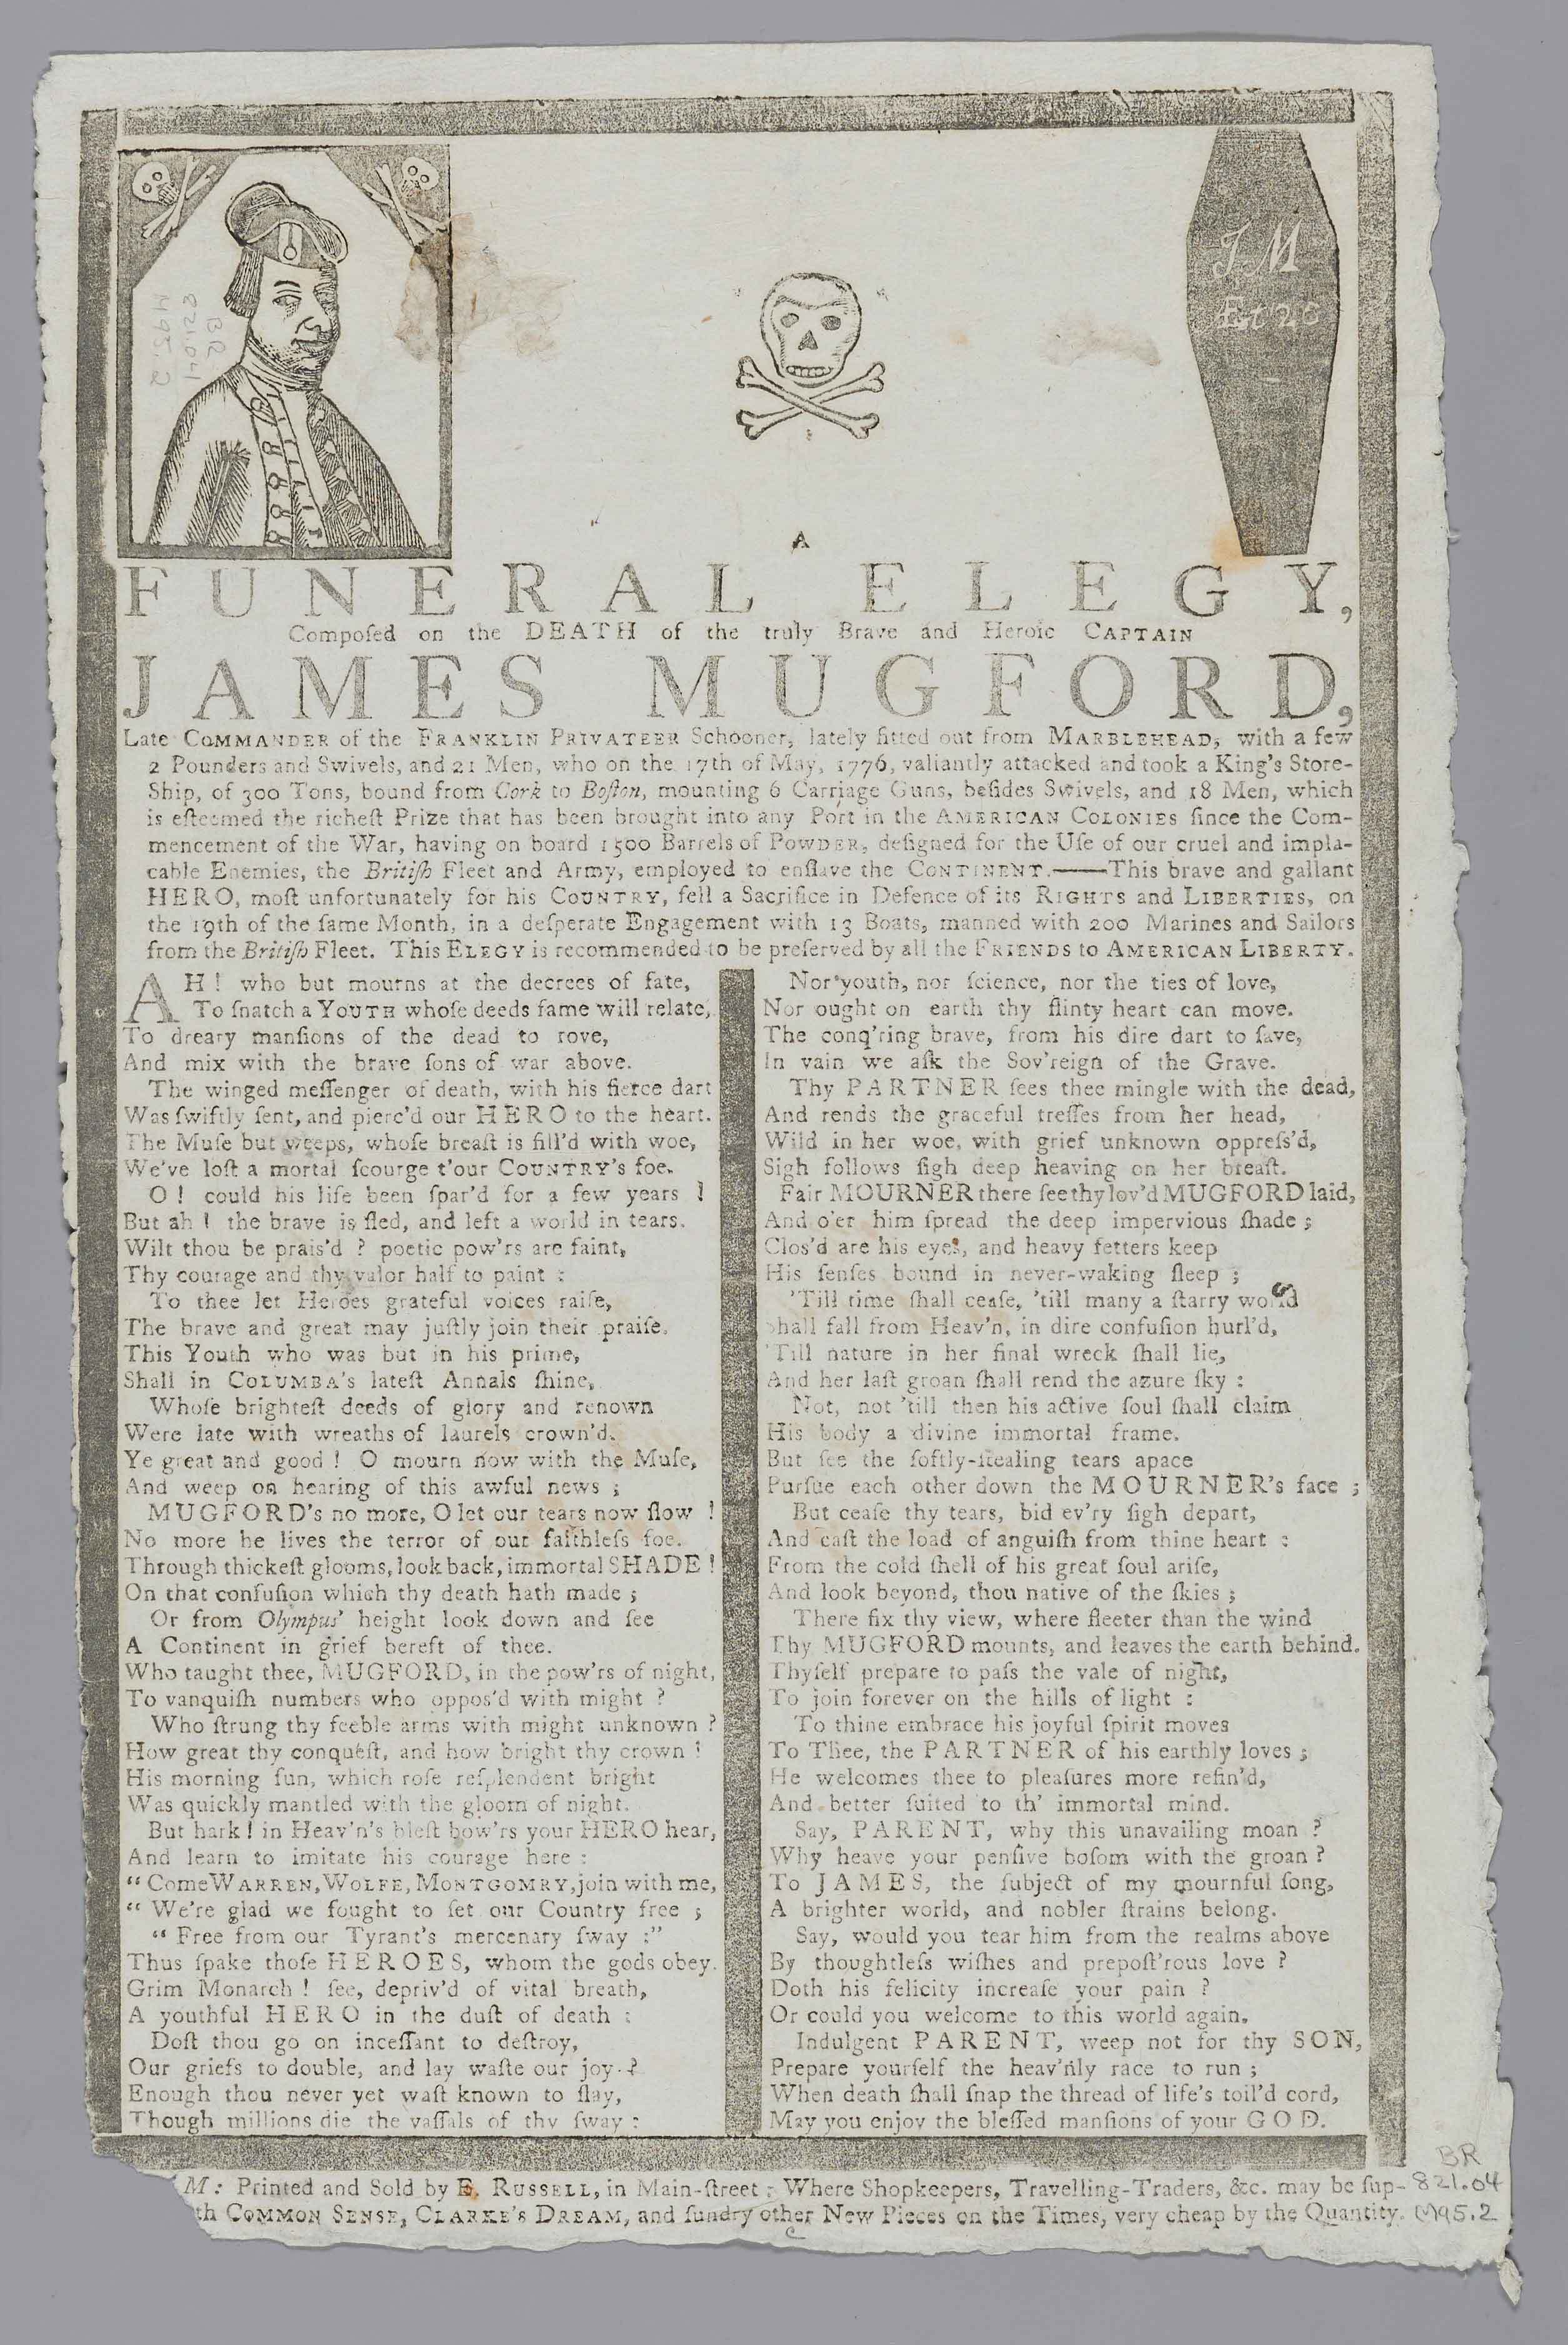 J M
Æt 26
A
FUNERAL ELEGY,
Compoſed on the DEATH of the truly Brave and Heroic CAPTAIN
JAMES MUGFORD,
Late COMMANDER of the FRANKLIN PRIVATEER Schooner, lately fitted out from MARBLEHEAD, with a few
2 Pounders and Swivels, and 21 Men, who on the 17th of May, 1776, valiantly attacked and took a King's Store-
Ship, of 300 Tons, bound from Cork to Boſton, mounting 6 Carriage Guns, beſides Swivels, and 18 Men, which
is eſteemed the richeſt Prize that has been brought into any Port in the AMERICAN COLONIES ſince the Com-
mencement of the War, having on board 1500 Barrels of POWDER, deſigned for the Uſe of our cruel and impla-
cable Enemies, the Britiſh Fleet and Army, employed to enſlave the CONTINENT.——This brave and gallant
HERO, moſt unfortunately for his COUNTRY, fell a Sacrifice in Defence of its RIGHTS and LIBERTIES, on
the 19th of the ſame Month, in a deſperate Engagement with 13 Boats, manned with 200 Marines and Sailors
from the Britiſh Fleet. This ELEGY is recommended to be preſerved by all the FRIENDS to AMERICAN LIBERTY.
AH! who but mourns at the decrees of fate,
To ſnatch a YOUTH whoſe deeds fame will relate,
To dreary manſions of the dead to rove,
And mix with the brave ſons of war above.
The winged meſſenger of death, with his fierce dart
Was ſwiftly ſent, and pierc'd our HERO to the heart.
The Muſe but weeps, whoſe breaſt is fill'd with woe,
We've loſt a mortal ſcourge t'our COUNTRY's foe.
O! could his life been ſpar'd for a few years!
But ah! the brave is fled, and left a world in tears.
Wilt thou be prais'd? poetic pow'rs are faint,
Thy courage and thy valor half to paint:
To thee let Heroes grateful voices raiſe,
The brave and great may juſtly join their praiſe.
This Youth who was but in his prime,
Shall in COLUMBA's lateſt Annals ſhine,
Whoſe brighteſt deeds of glory and renown
Were late with wreaths of laurels crown'd.
Ye great and good! O mourn now with the Muſe,
And weep on hearing of this awful news;
MUGFORD's no more, O let our tears now flow!
No more he lives the terror of our faithleſs foe.
Through thickeſt glooms, look back, immortal SHADE!
On that confuſion which thy death hath made;
Or from Olympus' height look down and ſee
A Continent in grief bereft of thee.
Who taught thee, MUGFORD, in the pow'rs of night,
To vanquiſh numbers who oppos'd with might?
Who ſtrung thy feeble arms with might unknown?
How great thy conqueſt, and how bright thy crown!
His morning ſun, which roſe reſplendent bright
Was quickly mantled with the gloom of night.
But hark! in Heav'n's bleſt bow'rs your HERO hear,
And learn to imitate his courage here:
“Come WARREN, WOLFE, MONTGOMRY, join with me,
“We're glad we fought to ſet our Country free;
“Free from our Tyrant's mercenary ſway:”
Thus ſpake thoſe HEROES, whom the gods obey.
Grim Monarch! ſee, depriv'd of vital breath,
A youthful HERO in the duſt of death:
Doſt thou go on inceſſant to deſtroy,
Our griefs to double, and lay waſte our joy?
Enough thou never yet waſt known to ſlay,
Though millions die the vaſſals of thy ſway:
Nor youth, nor ſcience, nor the ties of love,
Nor ought on earth thy flinty heart can move.
The conq'ring brave, from his dire dart to ſave,
In vain we aſk the Sov'reign of the Grave.
Thy PARTNER ſees thee mingle with the dead,
And rends the graceful treſſes from her head,
Wild in her woe, with grief unknown oppreſs'd,
Sigh follows ſigh deep heaving on her breaſt.
Fair MOURNER there ſee thy lov'd MUGFORD laid,
And o'er him ſpread the deep impervious ſhade;
Clos'd are his eyes, and heavy fetters keep
His ſenſes bound in never-waking ſleep;
'Till time ſhall ceaſe, 'till many a ſtarry world
Shall fall from Heav'n, in dire confuſion hurl'd,
'Till nature in her final wreck ſhall lie,
And her laſt groan ſhall rend the azure ſky:
Not, not 'till then his active ſoul ſhall claim
His body a divine immortal frame.
But ſee the ſoftly-ſtealing tears apace
Purſue each other down the MOURNER's face;
But ceaſe thy tears, bid ev'ry ſigh depart,
And caſt the load of anguiſh from thine heart:
From the cold ſhell of his great ſoul ariſe,
And look beyond, thou native of the ſkies;
There fix thy view, where fleeter than the wind
Thy MUGFORD mounts, and leaves the earth behind.
Thyſelf prepare to paſs the vale of night,
To join forever on the hills of light:
To thine embrace his joyful ſpirit moves
To Thee, the PARTNER of his earthly loves;
He welcomes thee to pleaſures more refin'd,
And better ſuited to th' immortal mind.
Say, PARENT, why this unavailing moan?
Why heave your penſive boſom with the groan?
To JAMES, the ſubject of my mournful ſong,
A brighter world, and nobler ſtrains belong.
Say, would you tear him from the realms above
By thoughtleſs wiſhes and prepoſt'rous love?
Doth his felicity increaſe your pain?
Or could you welcome to this world again.
Indulgent PARENT, weep not for thy SON,
Prepare yourſelf the heav'nly race to run;
When death ſhall ſnap the thread of life's toil'd cord,
May you enjoy the bleſſed manſions of your GOD.
M: Printed and Sold by E. RUSSELL, in Main-ſtreet: Where Shopkeepers, Travelling-Traders, &c. may be ſup-
th COMMON SENSE, CLARKE's DREAM, and ſundry other New Pieces on the Times, very cheap by the Quantity.
BR
821.04
M95.2